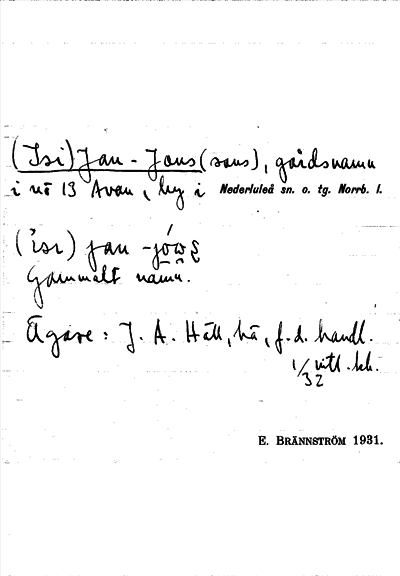 (Isi) Jan-Jons(sons), gårdsnamn
i nº 13 Avan, by i Nederluleå sn. o. tg. Norrb. l.
(ɪsɪ) jan -jóws̨
Gammalt namn.
Ägare: J. A. Häll, hä, f.d. handl.
1/32 mtl. kr.
E. BRÄNNSTRÖM 1931.